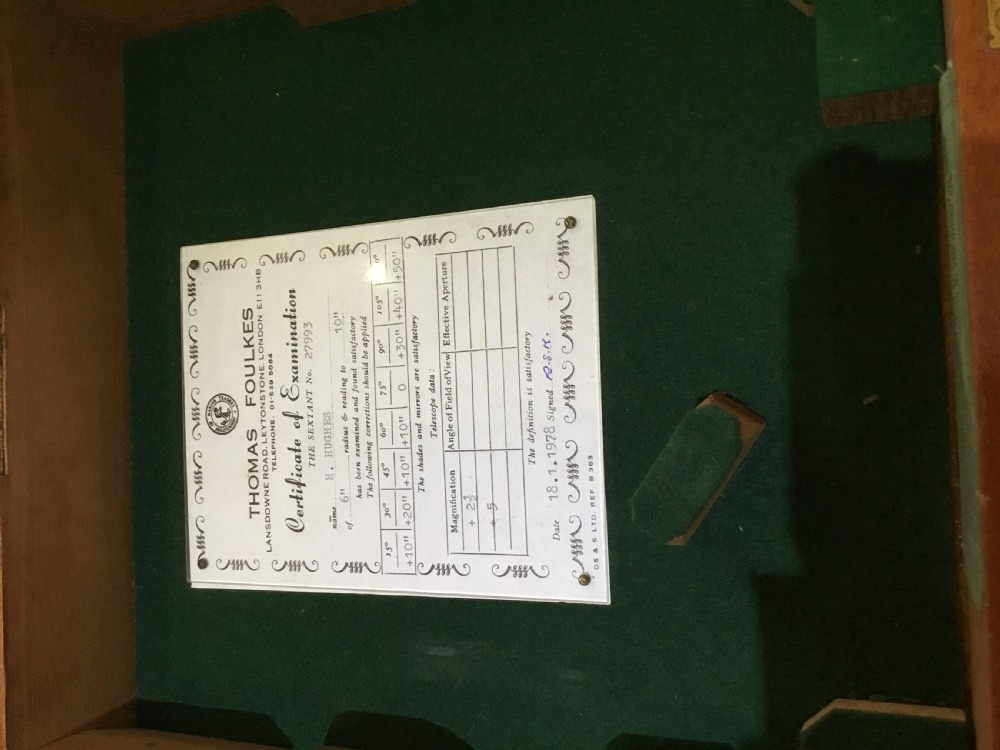 THOMAS FOULKES
LANSDOWNE ROAD, LEYTONSTONE, LONDON E11 3HB
TELEPHONE: 01-539 5084
Certificate of Examination
THE SEXTANT No. 27993
name H. HUGHES
of 6" radius & reading to 10"
has been examined and found satisfactory
The following corrections should be applied
15° 30° 45° 60° 75° 90° 105° 0°
+10" +20" +10" +10" 0 +30" +40" +50"
The shades and mirrors are satisfactory
Telescope data:
Magnification Angle of Field of View Effective Aperture
+ 2½
+ 5
The definition is satisfactory
Date 18.1.1978 Signed
DS & S LTD. REF B 383